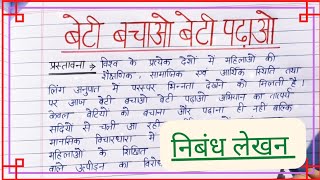 बेटी बचाओ बेटी पढ़ाओ
प्रस्तावना → विश्व के प्रत्येक देशों में महिलाओं की
शैक्षणिक, सामाजिक एवं आर्थिक स्थिति तथा
लिंग अनुपात में परस्पर भिन्नता देखने को मिलती है।
पर आज बेटी बचाओ बेटी पढ़ाओ अभियान का तात्पर्य
केवल बेटियों को बचाना और पढ़ाना ही नहीं बल्कि
सदियों से चली आ रही
मानसिक विचारधारा में
महिलाओं के शिक्षित
वाले उत्पीड़न का विरोध
निबंध लेखन